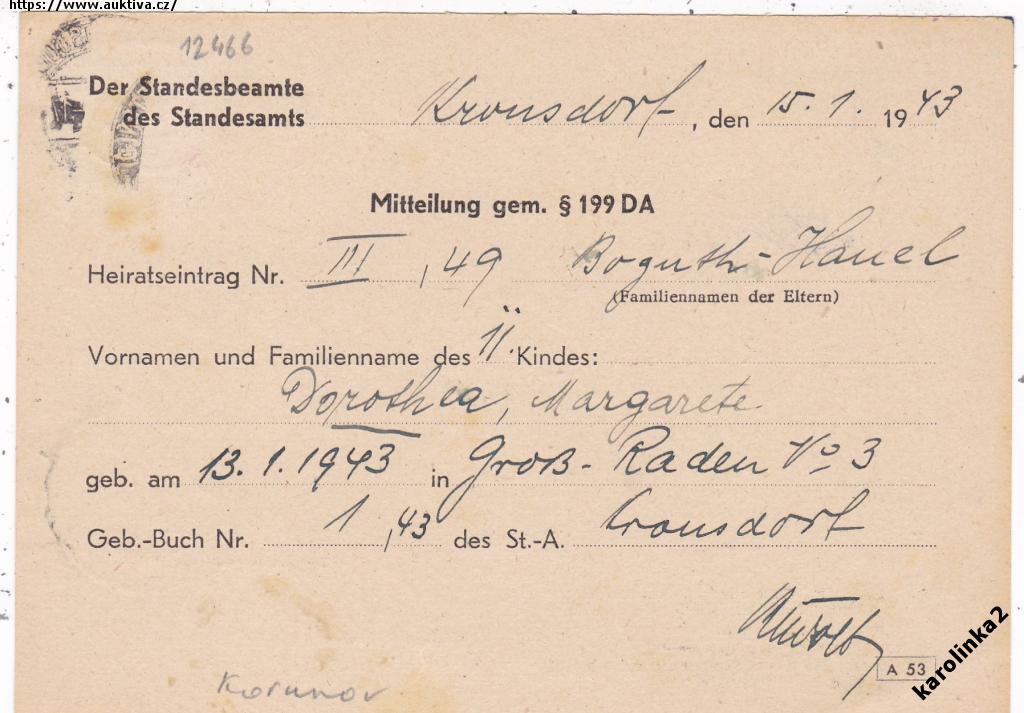 https://www.auktiva.cz/
12466
Der Standesbeamte
des Standesamts Kronsdorf, den 15. 1. 1943
Mitteilung gem. § 199 DA
Heiratseintrag Nr. III, 49 Boguth - Hanel
(Familiennamen der Eltern)
Vornamen und Familienname des II. Kindes:
Dorothea, Margarete
geb. am 13. 1. 1943 in Groß-Raden No 3
Geb.-Buch Nr. 1, 43 des St.-A. Kronsdorf
A 53
Korunov
karolinka2